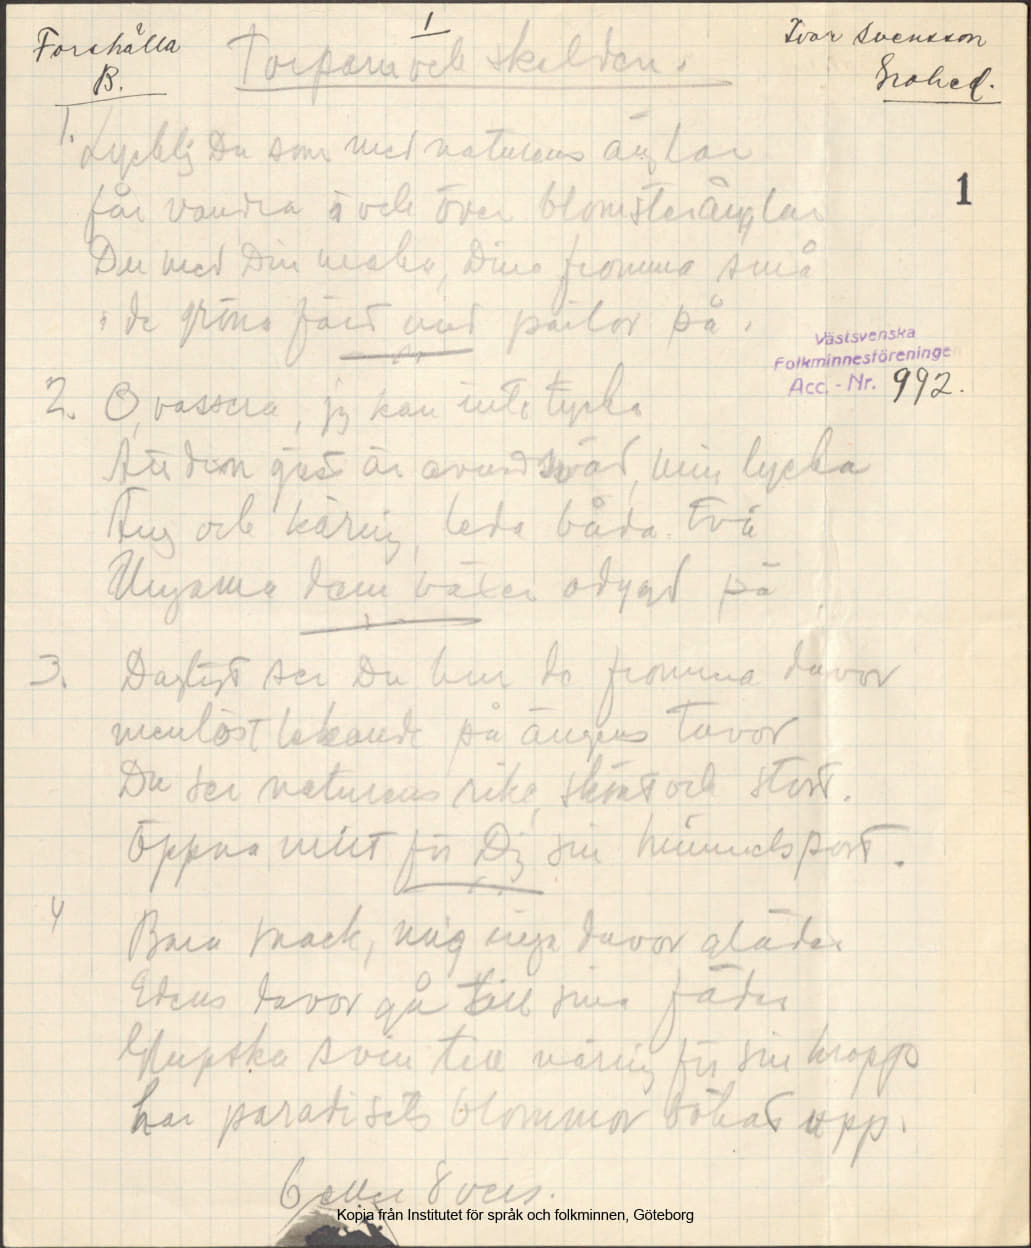 1
Forshälla
B.
Torparen och skalden.
Ivar Svensson
Grohed.
1
1. Lycklig Du som med naturens änglar
får vandra i och över blomsterängar
Du med Din maka, Dina fromma små
i de gröna fält med pärlor på.
Västsvenska
Folkminnesföreninge
Acc. - Nr. 992.
2. O, vassera, jag kan inte tycka
Att den just är avundsvärd, min lycka
Tug och käring, leda båda två
Ungarna dem växer odygd på
3. Dagligt ser Du hur de fromma duvor
menlöst lekande på ängens tuvor
Du ser naturens rike, skönt och stort.
Öppna vitt för Dig sin himmelsport.
4 Bara prack, mig inga duvor gläder
Edens duvor gå till sina fäder
Glupska svin till näring för sin kropp
har paradisets blommor bökat upp.
6 eller 8 vers.
Kopia från Institutet för språk och folkminnen, Göteborg